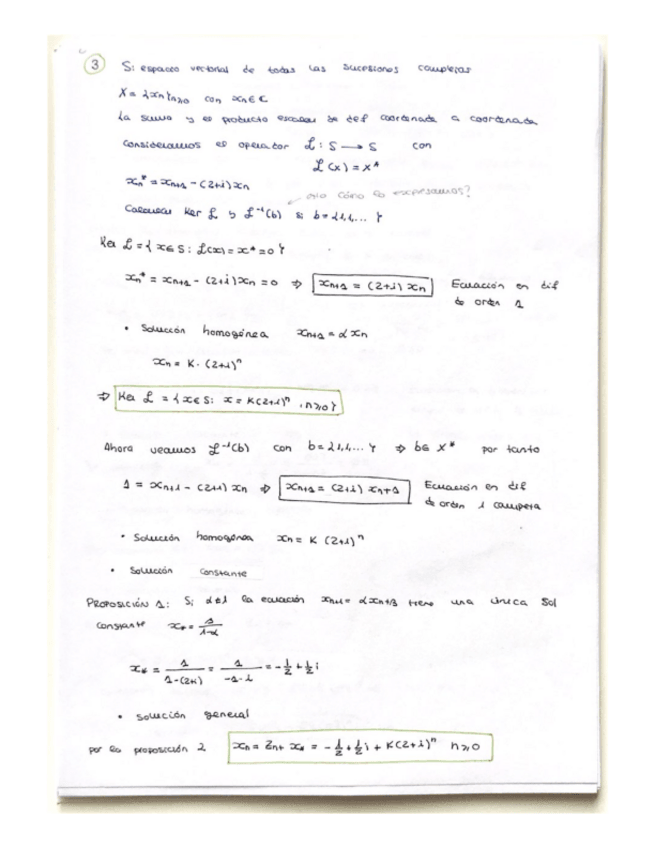 3 S: espacio vectorial de todas las sucesiones complejas
X = {xn}n≥0 con xn ∈ ℂ
La suma y el producto escalar se def coordenada a coordenada
Consideramos el operador ℒ: S → S con
ℒ(x) = x*
xn* = xn+1 - (2+i)xn
esto cómo lo expresamos?
Calcular Ker ℒ y ℒ⁻¹(b) si b = {1,1,... }
Ker ℒ = { x ∈ S: ℒ(x) = x* = 0 }
xn* = xn+1 - (2+i)xn = 0 ⇒ xn+1 = (2+i) xn Ecuación en dif
de orden 1
• Solución homogénea xn+1 = αxn
xn = K · (2+i)ⁿ
⇒ Ker ℒ = { x ∈ S: x = K(2+i)ⁿ , n≥0 }
Ahora veamos ℒ⁻¹(b) con b = {1,1,... } ⇒ b ∈ X* por tanto
1 = xn+1 - (2+i) xn ⇒ xn+1 = (2+i) xn+1 Ecuación en dif
de orden 1 completa
• Solución homogénea xn = K (2+i)ⁿ
• Solución constante
PROPOSICIÓN 1: Si α≠1 la ecuación xn+1 = αxn+β tiene una única sol
constante x* = β/1-α
x* = 1/1-(2+i) = 1/-1-i = -1/2 + 1/2 i
• Solución general
por la proposición 2 xn = zn + x* = -1/2 + 1/2 i + K(2+i)ⁿ n≥0